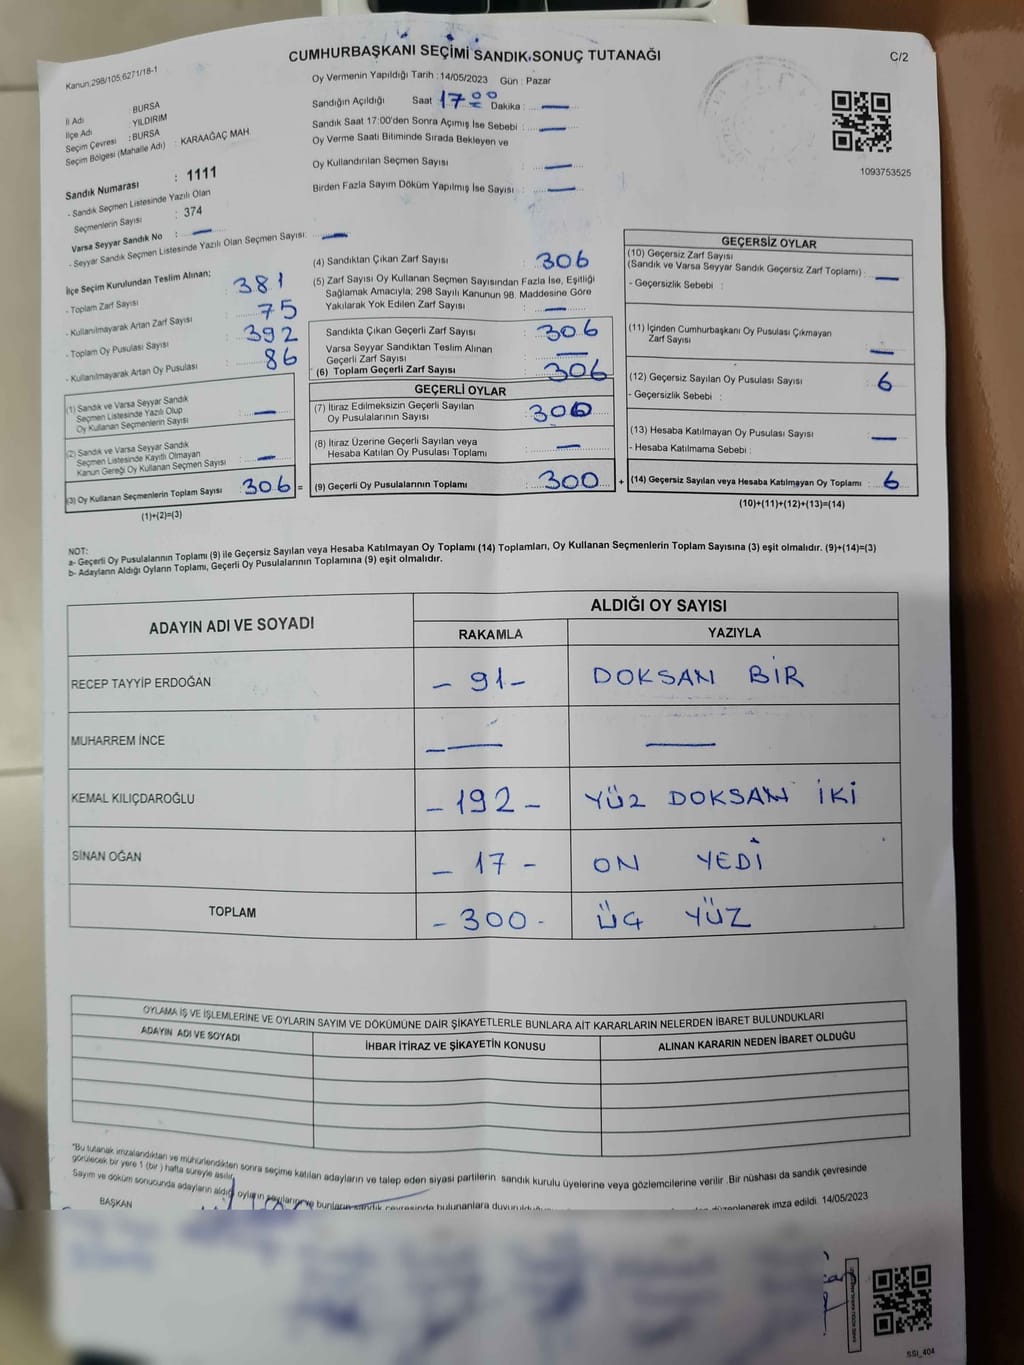 CUMHURBAŞKANI SEÇİMİ SANDIK SONUÇ TUTANAĞI
C/2
Kanun,298/105,6271/18-1
Oy Vermenin Yapıldığı Tarih :14/05/2023 Gün : Pazar
İl Adı : BURSA
İlçe Adı : YILDIRIM
Seçim Çevresi : BURSA
Seçim Bölgesi (Mahalle Adı) : KARAAĞAÇ MAH.
Sandık Numarası : 1111
- Sandık Seçmen Listesinde Yazılı Olan
Seçmenlerin Sayısı : 374
Varsa Seyyar Sandık No : —
- Seyyar Sandık Seçmen Listesinde Yazılı Olan Seçmen Sayısı: —
Sandığın Açıldığı Saat 17 00 Dakika : —
Sandık Saat 17:00'den Sonra Açımış İse Sebebi : —
Oy Verme Saati Bitiminde Sırada Bekleyen ve
Oy Kullandırılan Seçmen Sayısı —
Birden Fazla Sayım Döküm Yapılmış İse Sayısı : —
1093753525
İlçe Seçim Kurulundan Teslim Alınan;
- Toplam Zarf Sayısı : 381
- Kullanılmayarak Artan Zarf Sayısı 75
- Toplam Oy Pusulası Sayısı 392
- Kullanılmayarak Artan Oy Pusulası : 86
(1) Sandık ve Varsa Seyyar Sandık
Seçmen Listesinde Yazılı Olup
Oy Kullanan Seçmenlerin Sayısı : —
(2) Sandık ve Varsa Seyyar Sandık
Seçmen Listesinde Kayıtlı Olmayan
Kanun Gereği Oy Kullanan Seçmen Sayısı : —
(3) Oy Kullanan Seçmenlerin Toplam Sayısı : 306 =
(1)+(2)=(3)
(4) Sandıktan Çıkan Zarf Sayısı : 306
(5) Zarf Sayısı Oy Kullanan Seçmen Sayısından Fazla İse, Eşitliği
Sağlamak Amacıyla; 298 Sayılı Kanunun 98. Maddesine Göre
Yakılarak Yok Edilen Zarf Sayısı : —
Sandıkta Çıkan Geçerli Zarf Sayısı : 306
Varsa Seyyar Sandıktan Teslim Alınan
Geçerli Zarf Sayısı : —
(6) Toplam Geçerli Zarf Sayısı : 306
GEÇERLİ OYLAR
(7) İtiraz Edilmeksizin Geçerli Sayılan
Oy Pusulalarının Sayısı : 300
(8) İtiraz Üzerine Geçerli Sayılan veya
Hesaba Katılan Oy Pusulası Toplamı : —
(9) Geçerli Oy Pusulalarının Toplamı : 300 +
GEÇERSİZ OYLAR
(10) Geçersiz Zarf Sayısı
(Sandık ve Varsa Seyyar Sandık Geçersiz Zarf Toplamı) : —
- Geçersizlik Sebebi :
(11) İçinden Cumhurbaşkanı Oy Pusulası Çıkmayan
Zarf Sayısı : —
(12) Geçersiz Sayılan Oy Pusulası Sayısı : 6
- Geçersizlik Sebebi :
(13) Hesaba Katılmayan Oy Pusulası Sayısı : —
- Hesaba Katılmama Sebebi :
(14) Geçersiz Sayılan veya Hesaba Katılmayan Oy Toplamı : 6
(10)+(11)+(12)+(13)=(14)
NOT:
a- Geçerli Oy Pusulalarının Toplamı (9) ile Geçersiz Sayılan veya Hesaba Katılmayan Oy Toplamı (14) Toplamları, Oy Kullanan Seçmenlerin Toplam Sayısına (3) eşit olmalıdır. (9)+(14)=(3)
b- Adayların Aldığı Oyların Toplamı, Geçerli Oy Pusulalarının Toplamına (9) eşit olmalıdır.
ADAYIN ADI VE SOYADI
ALDIĞI OY SAYISI
RAKAMLA YAZIYLA
RECEP TAYYİP ERDOĞAN - 91 - DOKSAN BİR
MUHARREM İNCE — —
KEMAL KILIÇDAROĞLU - 192 - YÜZ DOKSAN İKİ
SİNAN OĞAN - 17 - ON YEDİ
TOPLAM - 300 - ÜÇ YÜZ
OYLAMA İŞ VE İŞLEMLERİNE VE OYLARIN SAYIM VE DÖKÜMÜNE DAİR ŞİKAYETLERLE BUNLARA AİT KARARLARIN NELERDEN İBARET BULUNDUKLARI
ADAYIN ADI VE SOYADI İHBAR İTİRAZ VE ŞİKAYETİN KONUSU ALINAN KARARIN NEDEN İBARET OLDUĞU
"Bu tutanak imzalandıktan ve mühürlendikten sonra seçime katılan adayların ve talep eden siyasi partilerin sandık kurulu üyelerine veya gözlemcilerine verilir. Bir nüshası da sandık çevresinde
görülecek bir yere 1 (bir) hafta süreyle asılır.
Sayım ve döküm sonucunda adayların aldığı oyların sayılarını ve bunların sandık çevresinde bulunanlara düzenlenerek imza edildi. 14/05/2023
BAŞKAN
SSI_404